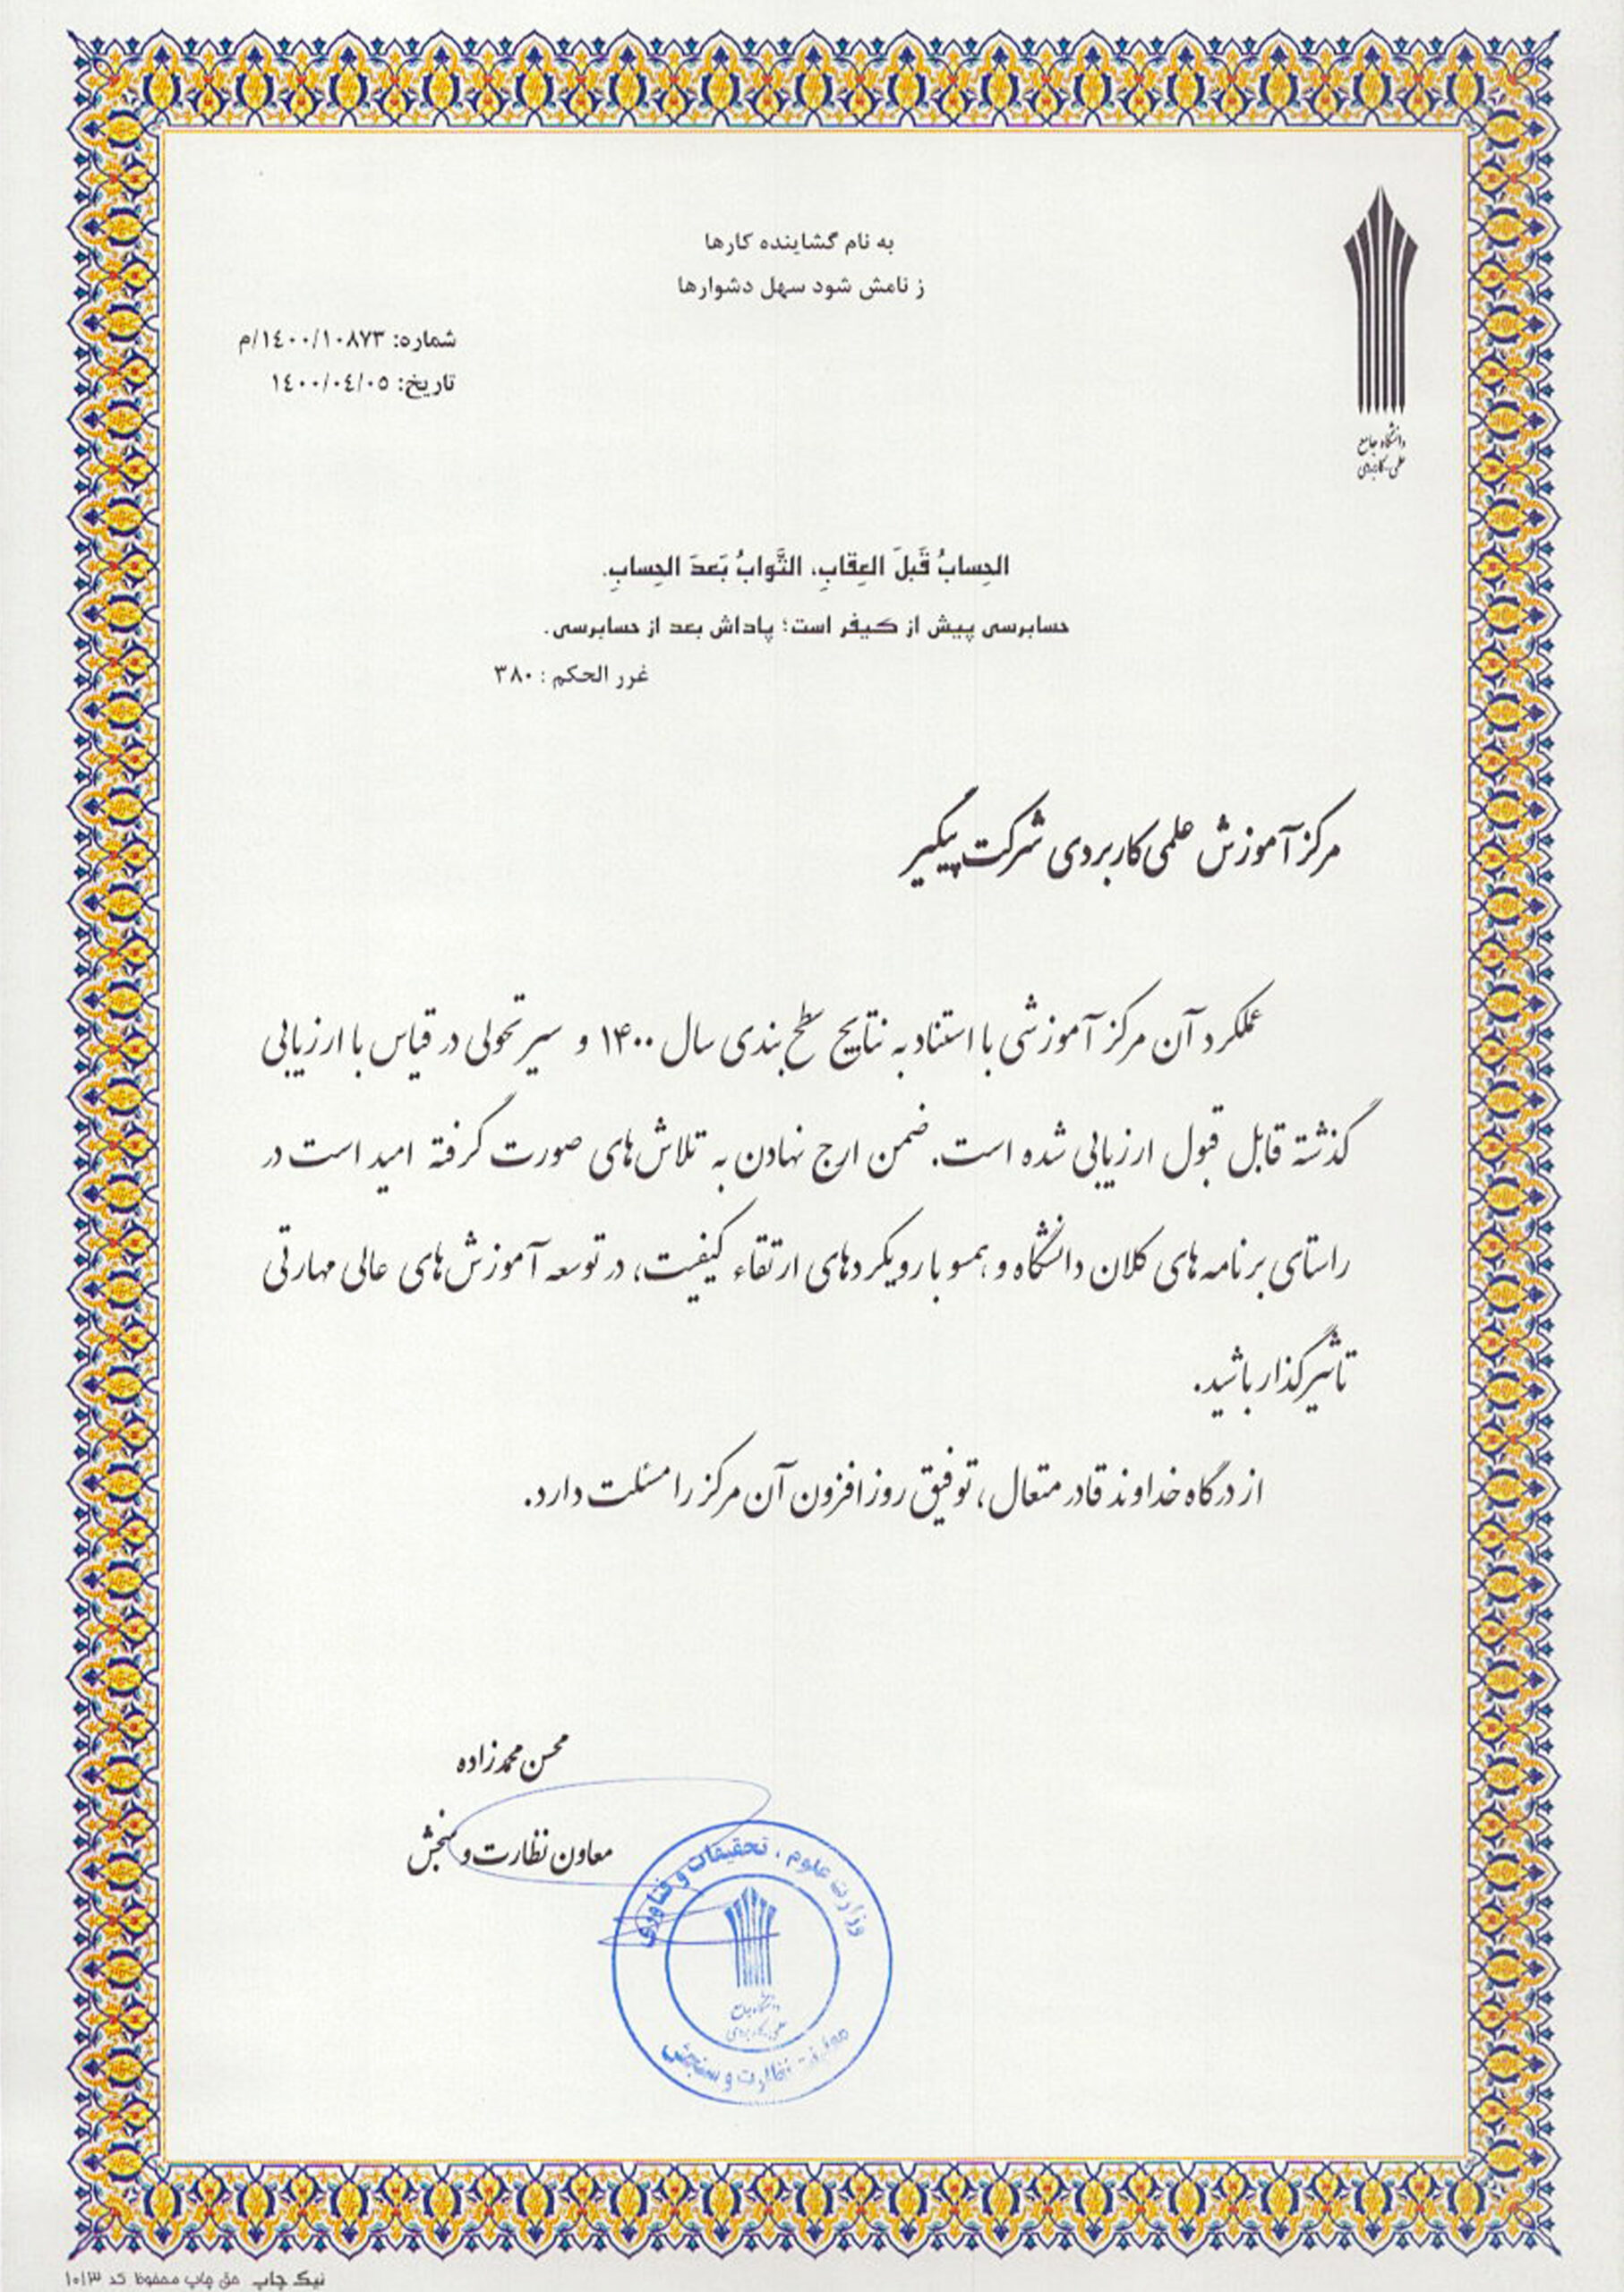 به نام گشاینده کارها
ز نامش شود سهل دشوارها
شماره: ۱۴۰۰/۱۰۸۷۳/م
تاریخ: ۱۴۰۰/۰۴/۰۵
دانشگاه جامع
علمی-کاربردی
الحِسابُ قَبلَ العِقابِ، الثَّوابُ بَعدَ الحِسابِ.
حسابرسی پیش از کیفر است؛ پاداش بعد از حسابرسی.
غرر الحکم : ۳۸۰
مرکز آموزش علمی کاربردی شرکت پیگیر
عملکرد آن مرکز آموزشی با استناد به نتایج سطح بندی سال ۱۴۰۰ و سیر تحولی در قیاس با ارزیابی
گذشته قابل قبول ارزیابی شده است. ضمن ارج نهادن به تلاش‌های صورت گرفته امید است در
راستای برنامه های کلان دانشگاه و همسو با رویکردهای ارتقاء کیفیت، در توسعه آموزش‌های عالی مهارتی
تاثیرگذار باشید.
از درگاه خداوند قادر متعال، توفیق روزافزون آن مرکز را مسئلت دارد.
محسن محمدزاده
معاون نظارت و سنجش
وزارت علوم ، تحقیقات و فناوری
دانشگاه جامع
علمی-کاربردی
معاونت نظارت و سنجش
نیک چاپ حق چاپ محفوظ کد ۱۰۱۳